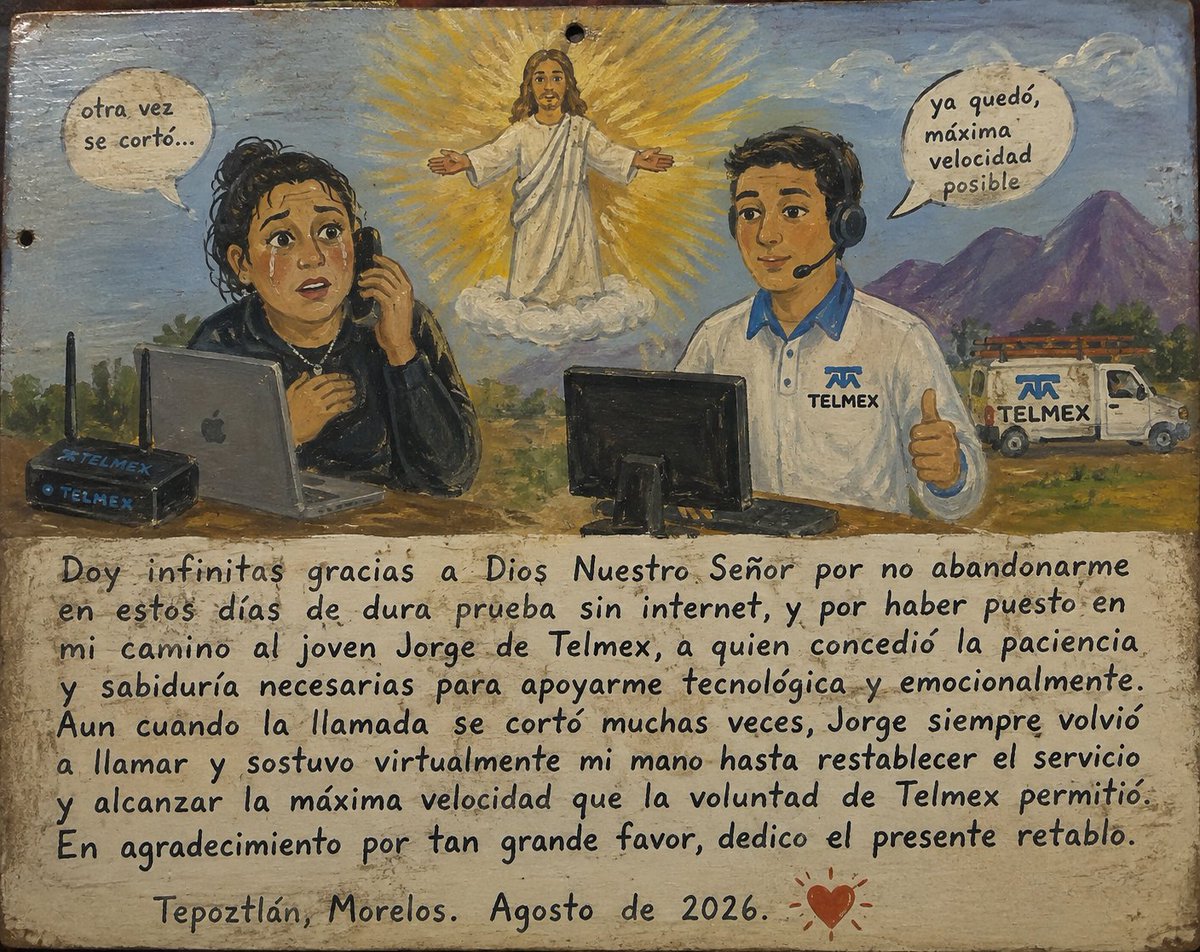 otra vez
se cortó...
ya quedó,
máxima
velocidad
posible
TELMEX
TELMEX
TELMEX
TELMEX
Doy infinitas gracias a Dios Nuestro Señor por no abandonarme
en estos días de dura prueba sin internet, y por haber puesto en
mi camino al joven Jorge de Telmex, a quien concedió la paciencia
y sabiduría necesarias para apoyarme tecnológica y emocionalmente.
Aun cuando la llamada se cortó muchas veces, Jorge siempre volvió
a llamar y sostuvo virtualmente mi mano hasta restablecer el servicio
y alcanzar la máxima velocidad que la voluntad de Telmex permitió.
En agradecimiento por tan grande favor, dedico el presente retablo.
Tepoztlán, Morelos. Agosto de 2026.